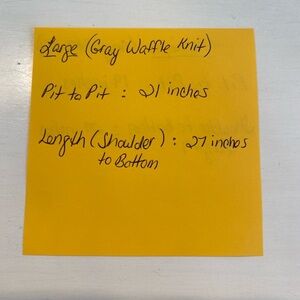 Large (Gray Waffle Knit)
Pit to Pit : 21 inches
Length (Shoulder) : 27 inches
to Bottom